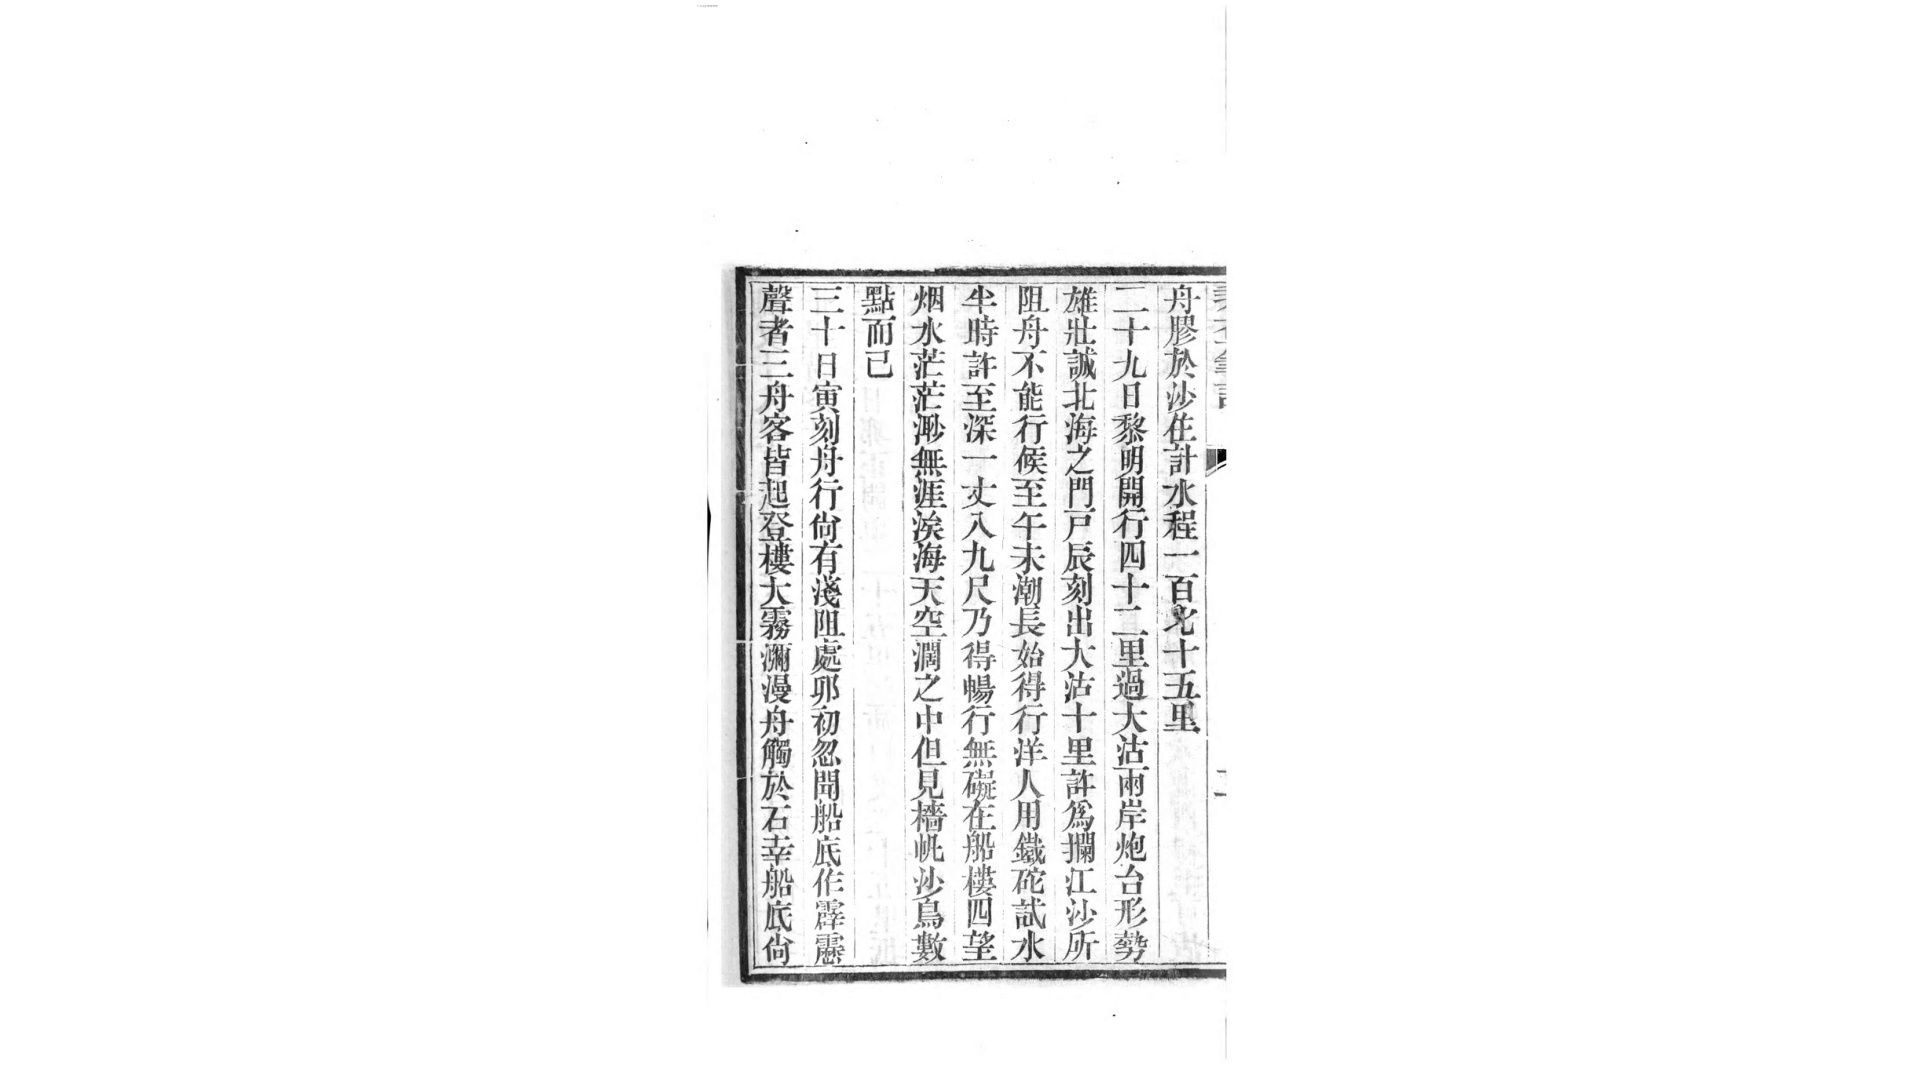 舟膠於沙住計水程一百九十五里
二十九日黎明開行四十二里過大沽兩岸炮台形勢
雄壯誠北海之門戸辰刻出大沽十里許爲攔江沙所
阻舟不能行候至午未潮長始得行洋人用鐵砣試水
半時許至深一丈八九尺乃得暢行無礙在船樓四望
烟水茫茫渺無涯涘海天空濶之中但見檣帆沙鳥數
點而已
三十日寅刻舟行尙有淺阻處卯初忽聞船底作霹靂
聲者三舟客皆起登樓大霧瀰漫舟觸於石幸船底尙